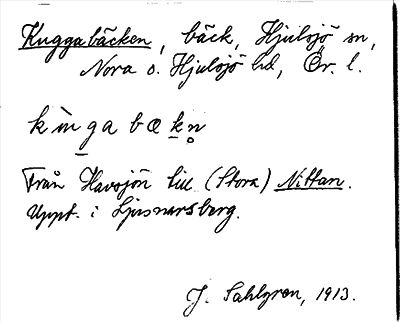 Kuggabäcken, bäck, Hjulsjö sn,
Nora o. Hjulsjö hd, Ör. l.
Från Havsjön till (Stora) Nittan.
Uppt. i Ljusnarsberg.
J. Sahlgren, 1913.